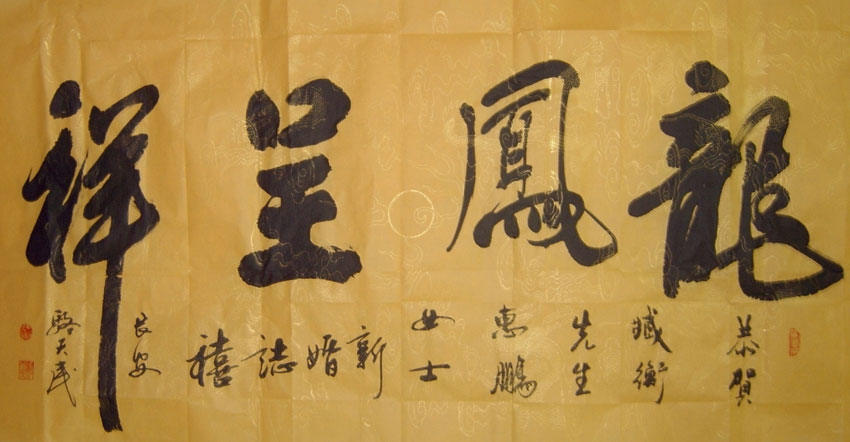 龍鳳呈祥
恭賀
臧衡
先生
惠鵬
女士
新婚誌禧
長安
駱天民